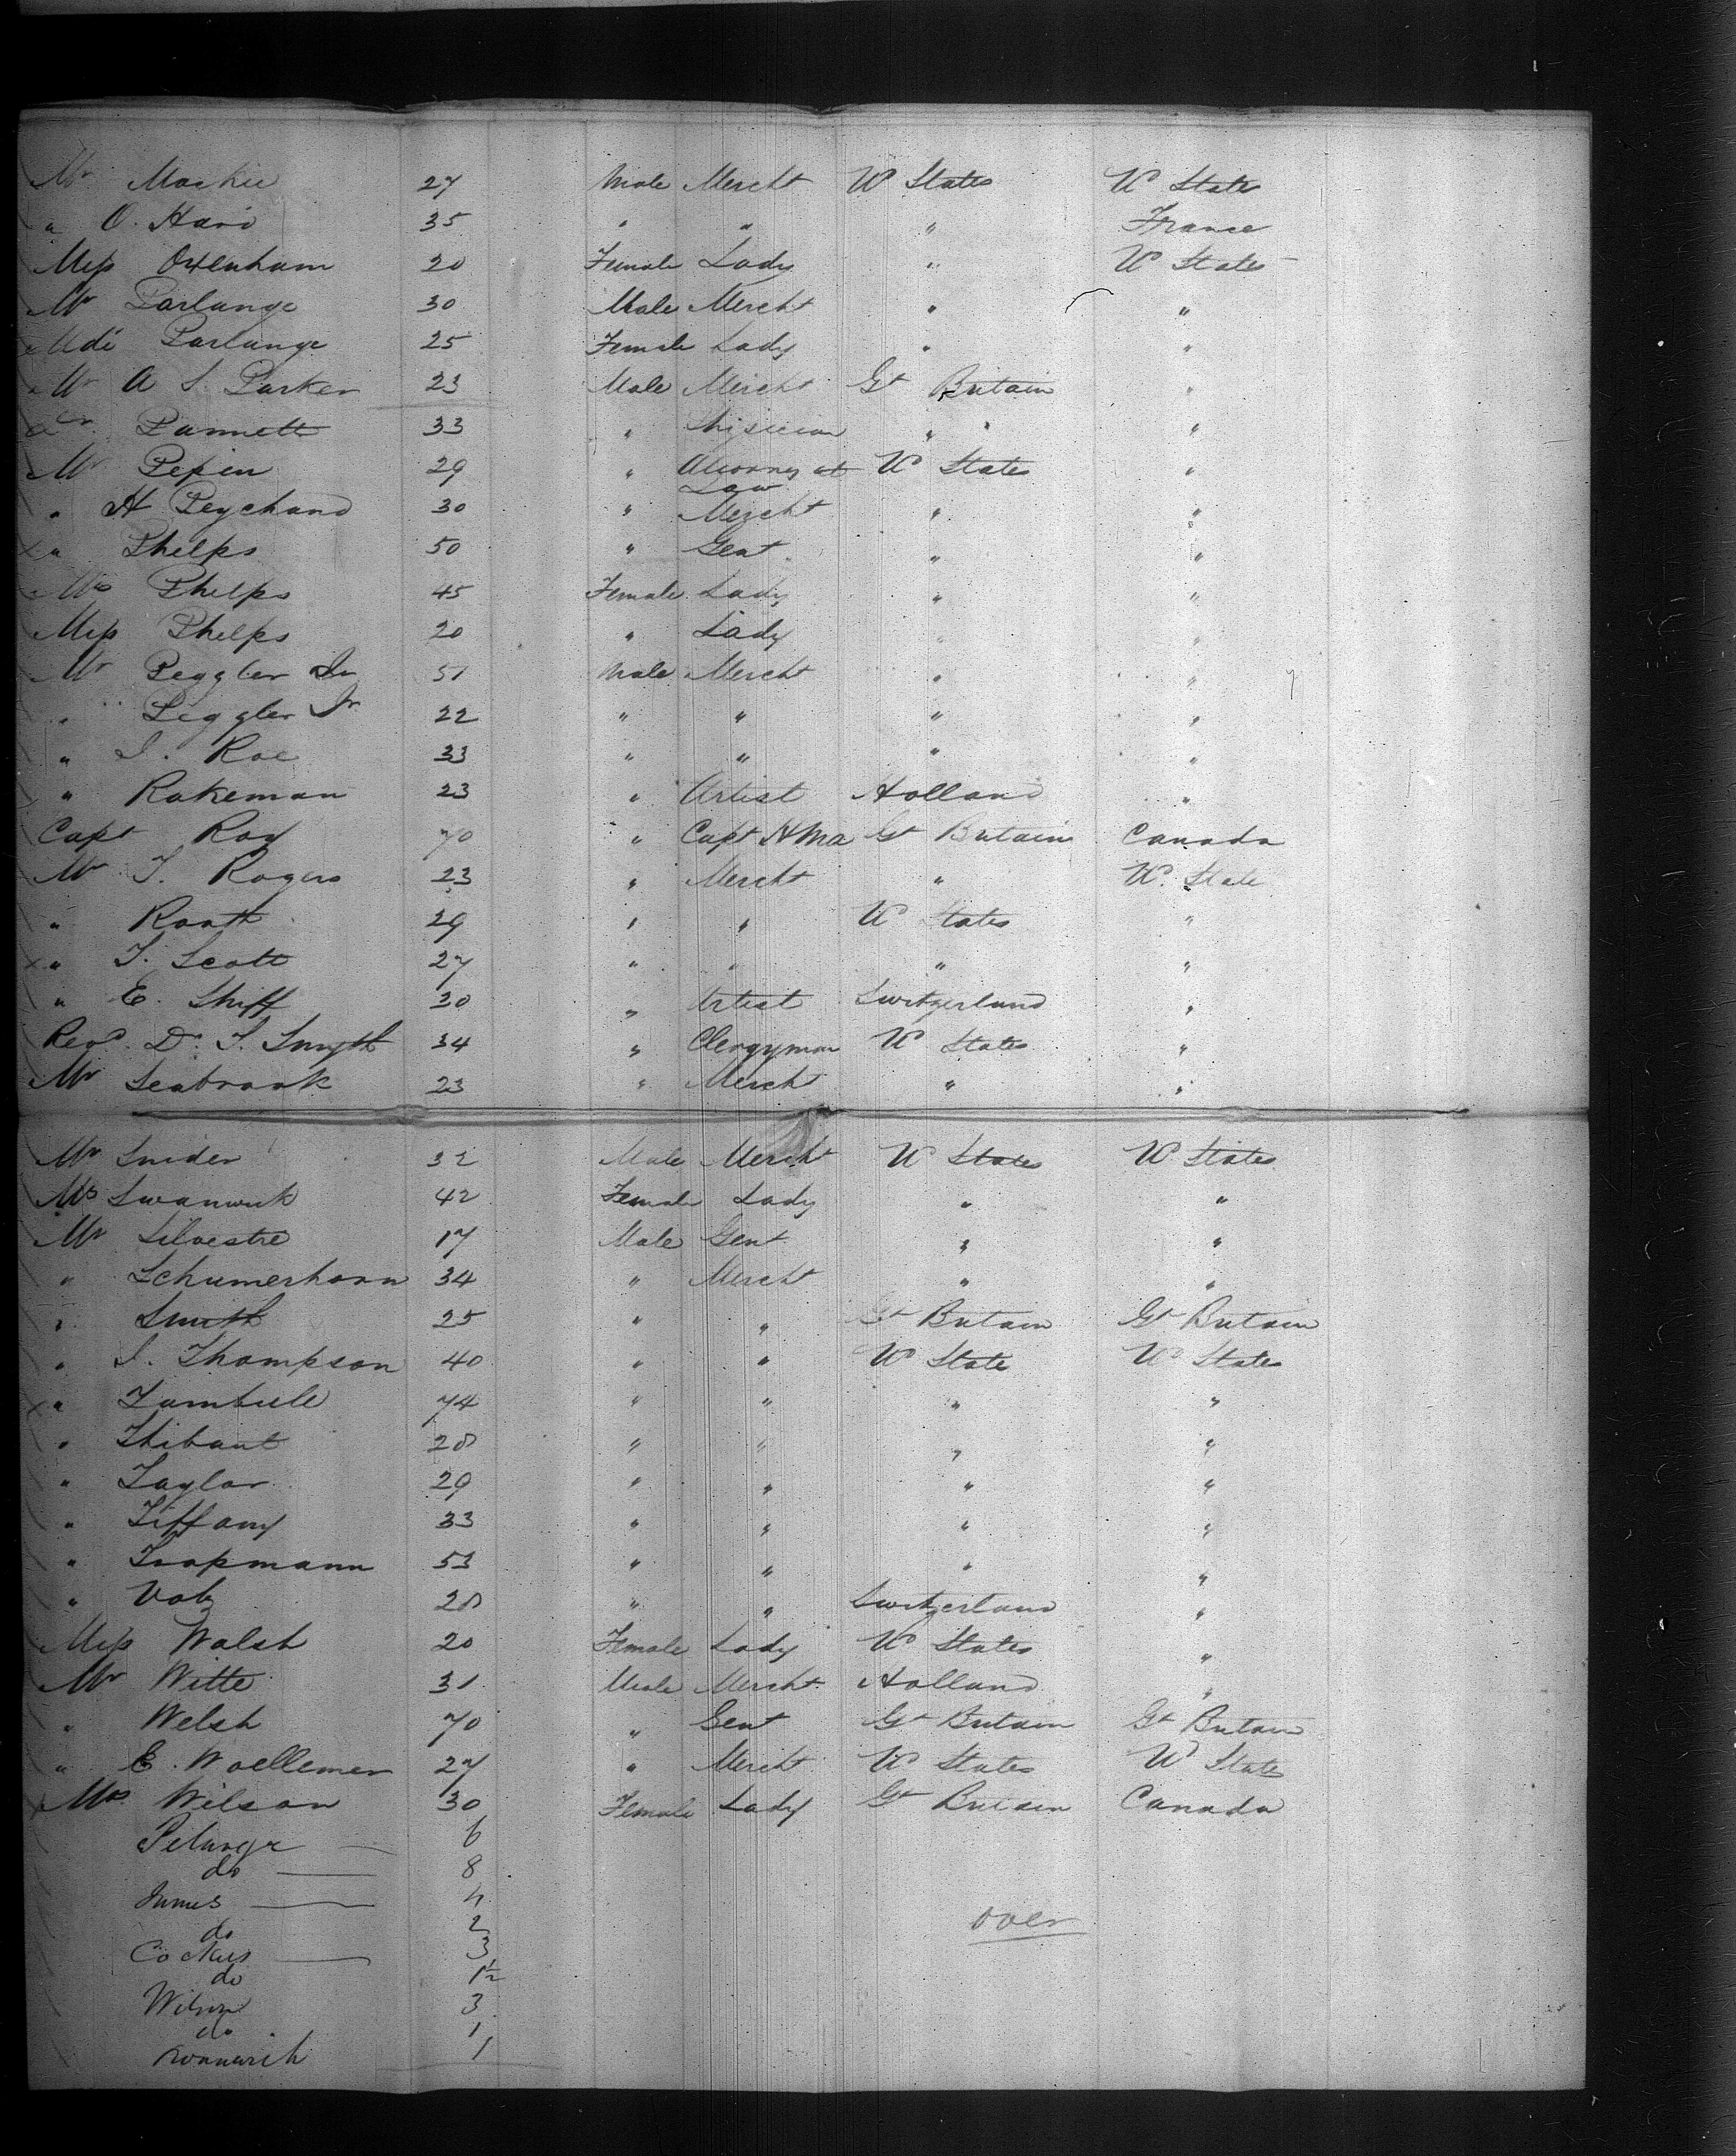 Mr Mackie 27 Male Mercht U States U States
" O. Hard 35 " " " France
Miss Oxenham 20 Female Lady " U States
Mr Parlange 30 Male Mercht " "
Mde Parlange 25 Female Lady " "
Mr A S. Parker 23 Male Mercht Gt Britain "
Dr. Pannett 33 " Phisician " " "
Mr Pepin 29 " Attorney at U States "
Law
" H Peychaud 30 " Mercht " "
" Phelps 50 " Gent " "
Mrs Phelps 45 Female Lady " "
Miss Phelps 20 " Lady " "
Mr Peggler Sr 51 Male Mercht " "
" Peggler Jr 22 " " " "
" J. Roe 33 " " " "
" Rakeman 23 " Artist Holland "
Capt Roy 70 " Capt Gt Britain Canada
Mr T. Rogers 23 " Mercht " U. State
" Routh 29 " " U States "
" T. Scott 27 " " " "
" E. Shiff 30 " Artist Switzerland "
Revd. Dr. T. Smyth 34 " Clergyman U States "
Mr Seabrook 23 " Mercht " "
Mr Snider 32 Male Mercht U States U States
Mrs Swanwick 42 Female Lady " "
Mr Silvestre 17 Male Gent " "
" Schumerhorn 34 " Mercht " "
" Smith 25 " " Gt Britain Gt Britain
" J. Thompson 40 " " U State U States
" Turnbull 74 " " " "
" Thibaut 28 " " " "
" Taylor 29 " " " "
" Tiffany 33 " " " "
" Trapmann 53 " " " "
" Volz 28 " " Switzerland "
Miss Walsh 20 Female Lady U States "
Mr Witte 31 Male Mercht Holland "
" Welsh 70 " Gent Gt Britain Gt Britain
" E. Woellemer 27 " Mercht U States U States
Mrs Wilson 30 Female Lady Gt Britain Canada
6
do 8
James 4
do 2
3
do 1½
Wilson 3
do 1
1
over